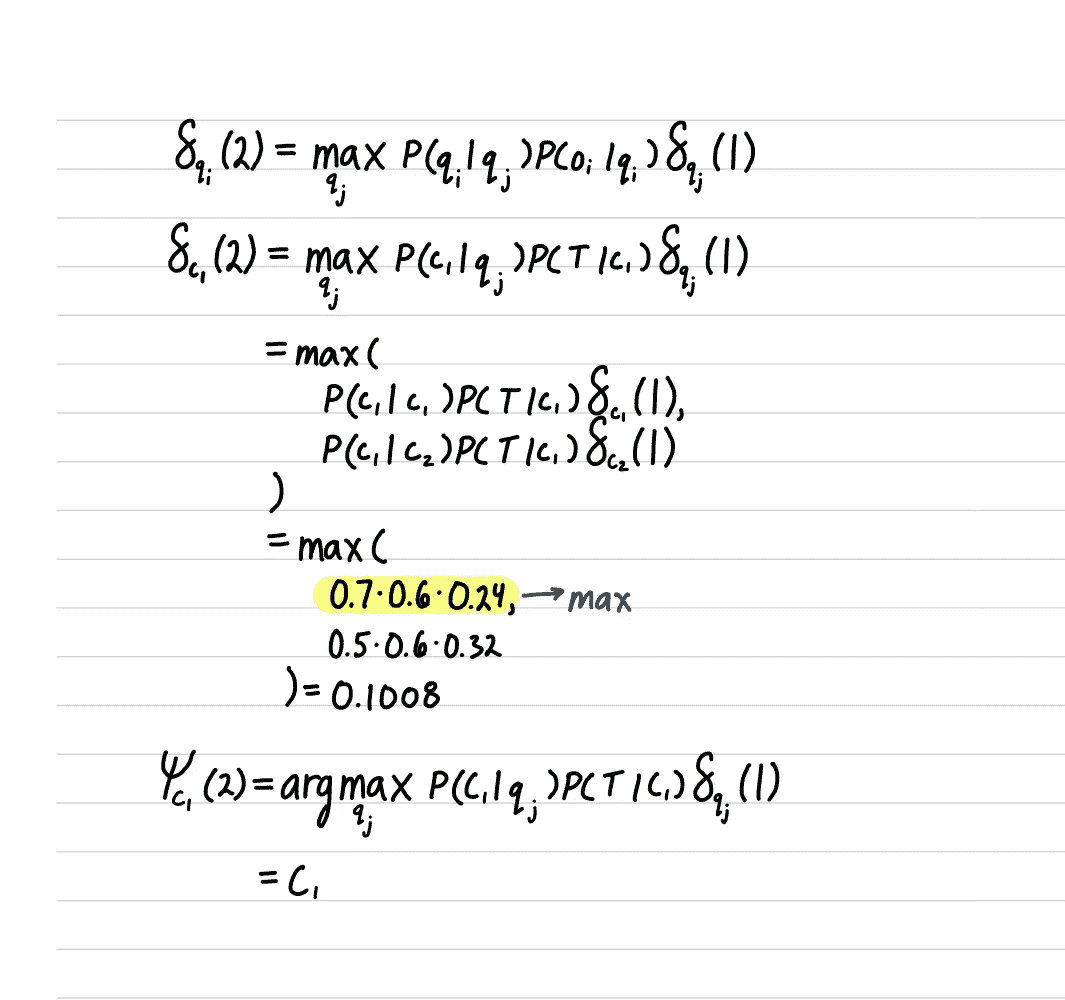 δ_{q_i}(2) = max_{q_j} P(q_i|q_j)P(o_i|q_i)δ_{q_j}(1)
δ_{c_1}(2) = max_{q_j} P(c_1|q_j)P(T|c_1)δ_{q_j}(1)
= max(
P(c_1|c_1)P(T|c_1)δ_{c_1}(1),
P(c_1|c_2)P(T|c_1)δ_{c_2}(1)
)
= max(
0.7·0.6·0.24, → max
0.5·0.6·0.32
) = 0.1008
Ψ_{c_1}(2) = arg max_{q_j} P(C_1|q_j)P(T|C_1)δ_{q_j}(1)
= C_1